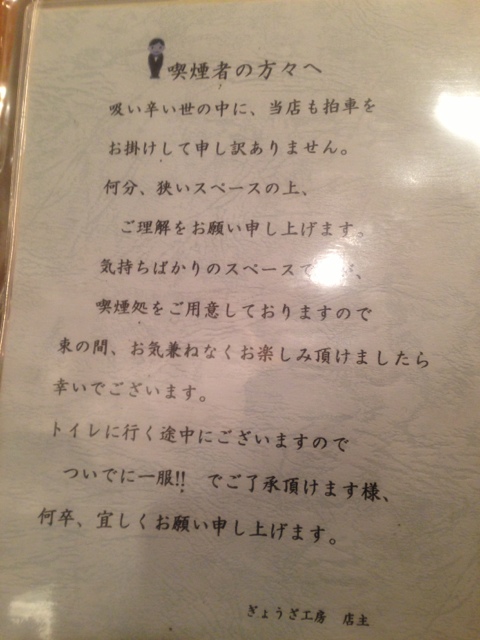 喫煙者の方々へ
吸い辛い世の中に、当店も拍車を
お掛けして申し訳ありません。
何分、狭いスペースの上、
ご理解をお願い申し上げます。
気持ちばかりのスペースで が、
喫煙処をご用意しておりますので
束の間、お気兼ねなくお楽しみ頂けましたら
幸いでございます。
トイレに行く途中にございますので
ついでに一服!! でご了承頂けます様、
何卒、宜しくお願い申し上げます。
ぎょうざ工房 店主